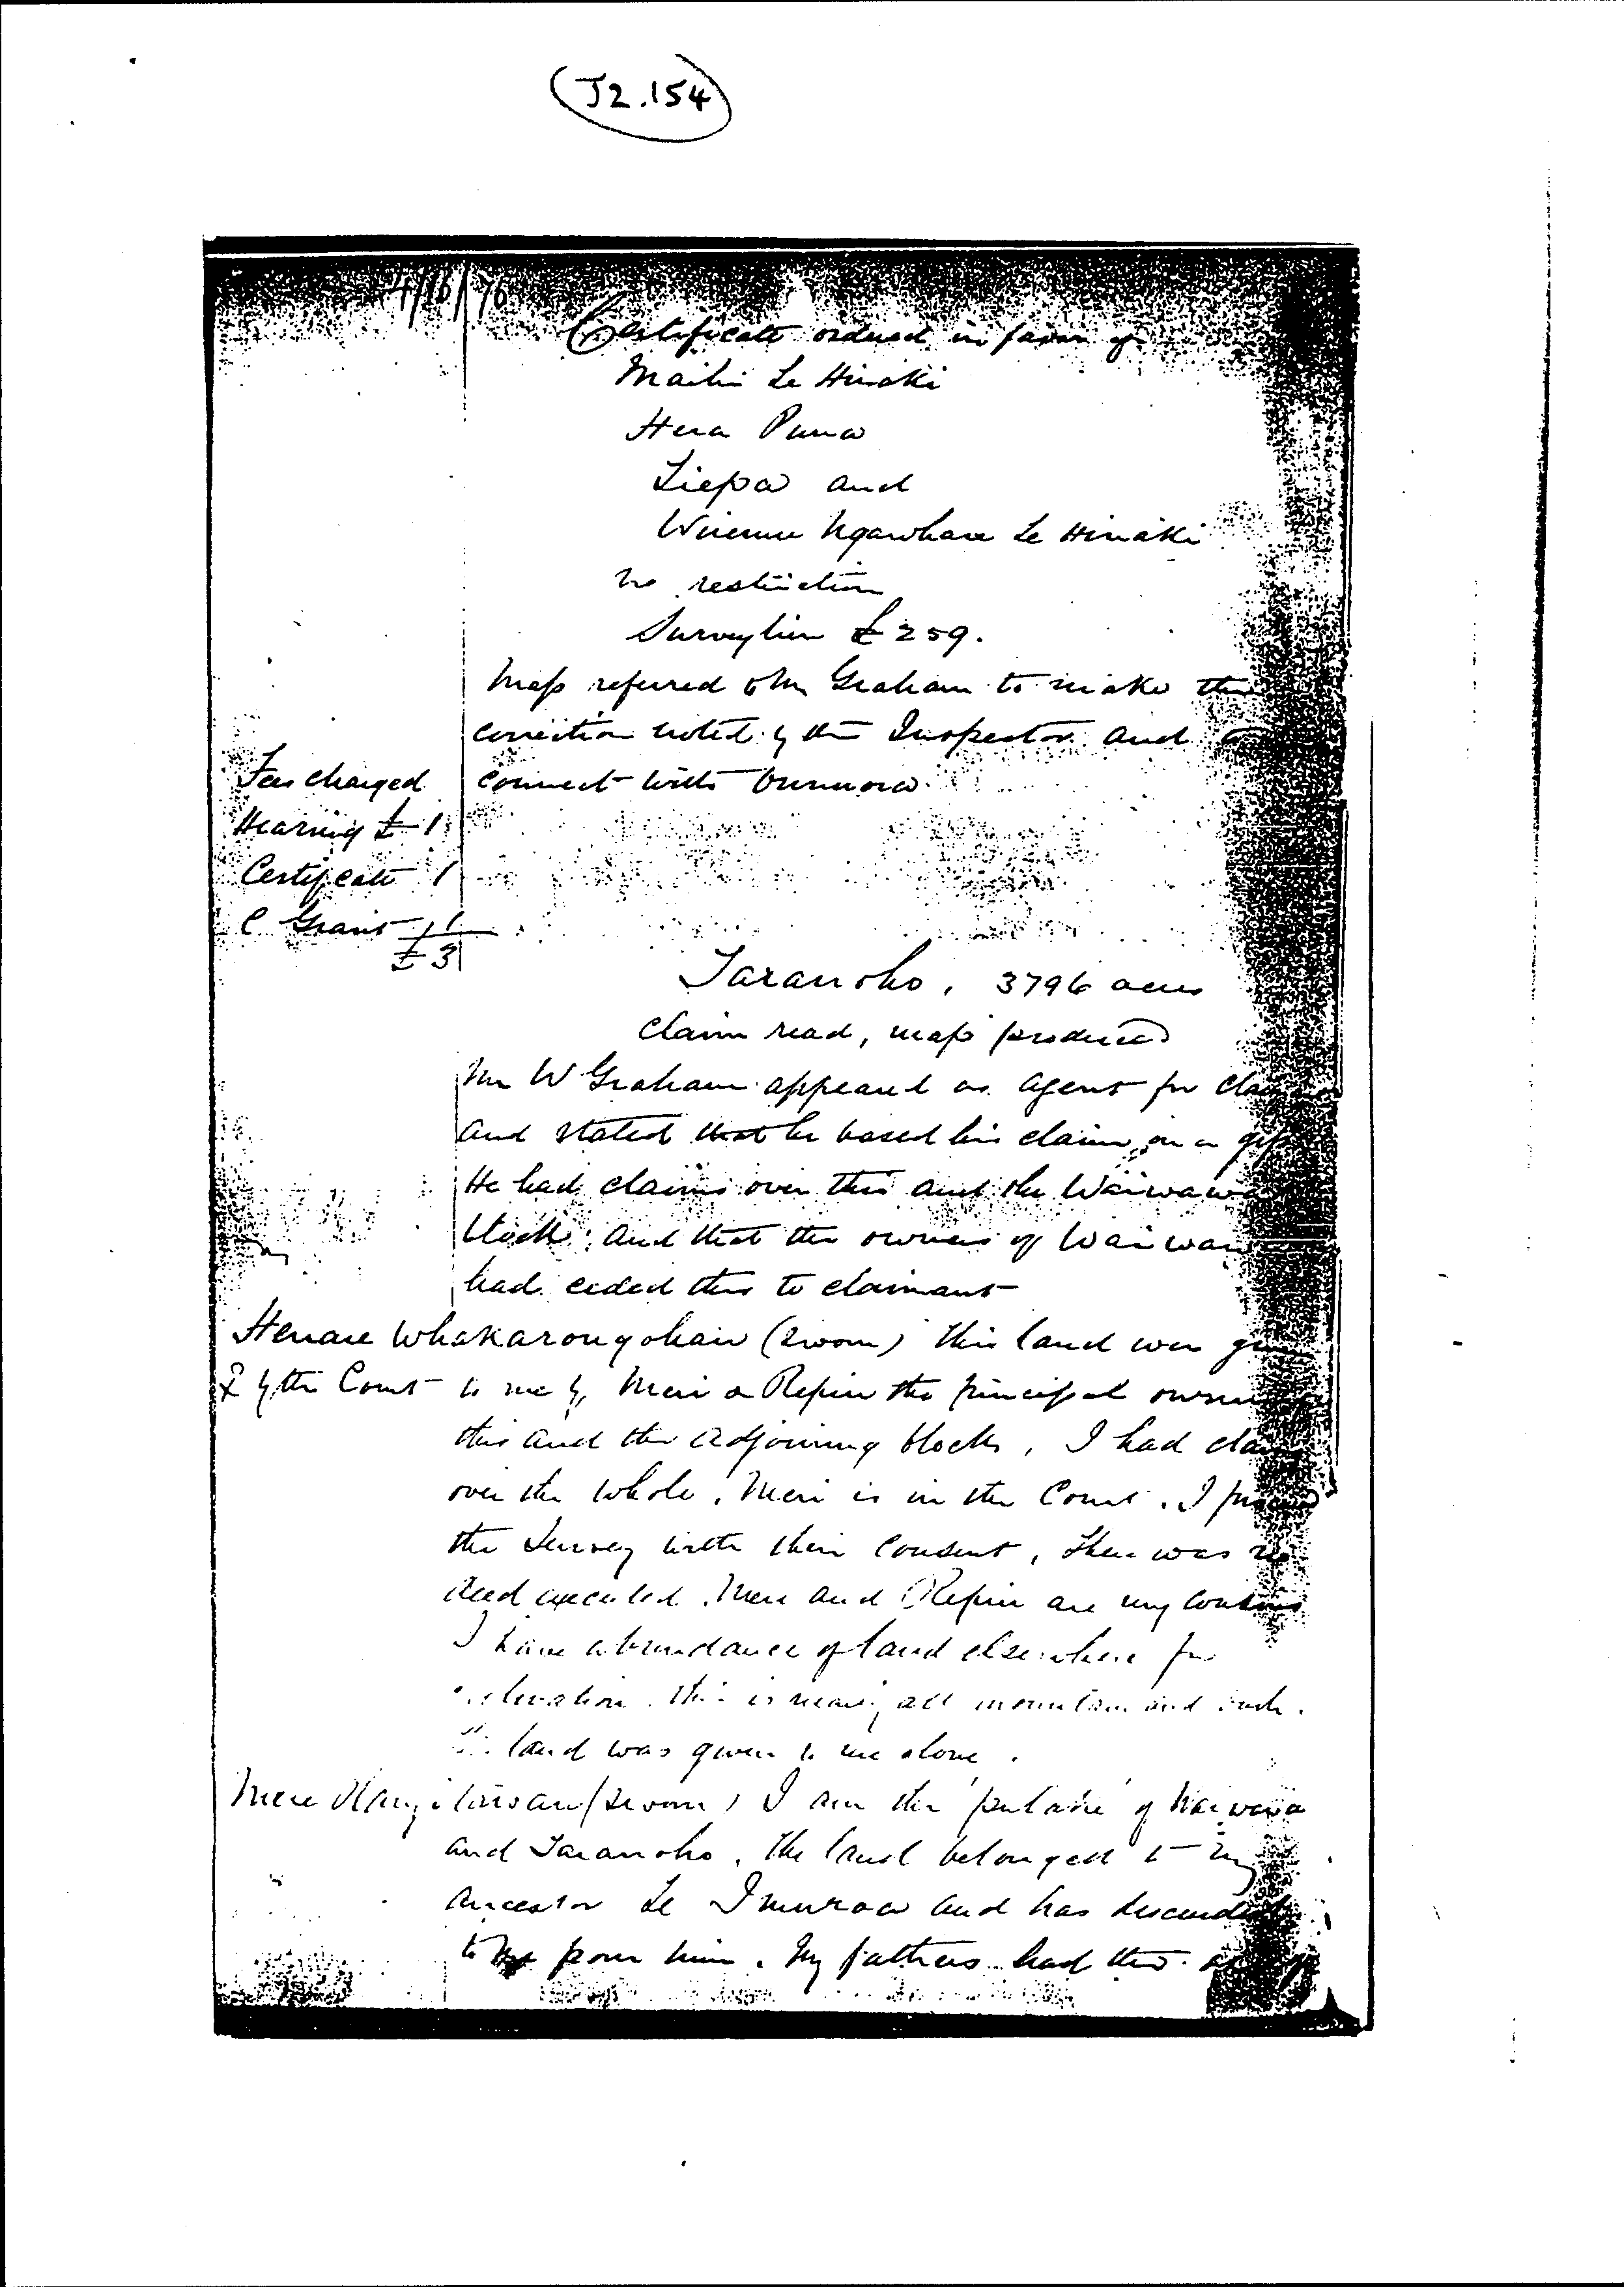 J2.154
4/16/76
Certificate ordered in favor of
Maihi Te Hinaki
Hera Puna
Tiepa and
Wiremu Ngawhare Te Hinaki
no restriction
Survey lien £259.
Map referred to Mr Graham to make the
correction noted by the Inspector and
connect with
Fees charged
Hearing £ 1
Certificate 1
C Grant 1
£ 3
Taranoho, 3796 acres
Claim read, map produced
Mr W Graham appeared as agent for
and stated that he based his claim on a gift
He had claims over this and the Waiwawa
block and that the owners of Waiwawa
had ceded this to claimant
Henare Whakarongohau (sworn) this land was
by the Court to me by Meri a Repiu the principal
this and the adjoining blocks, I had
over the whole. Meri is in the Court. I
the Survey with their consent, there was no
deed executed. Mere and Repiu are my cousins
I have abundance of land elsewhere for
this is nearly all mountain and
land was given to me alone.
Mere (sworn) I am the 'putake' of Waiwawa
and Taranoho. The land belonged to my
ancestor Te and has descended
to from him. My fathers had this